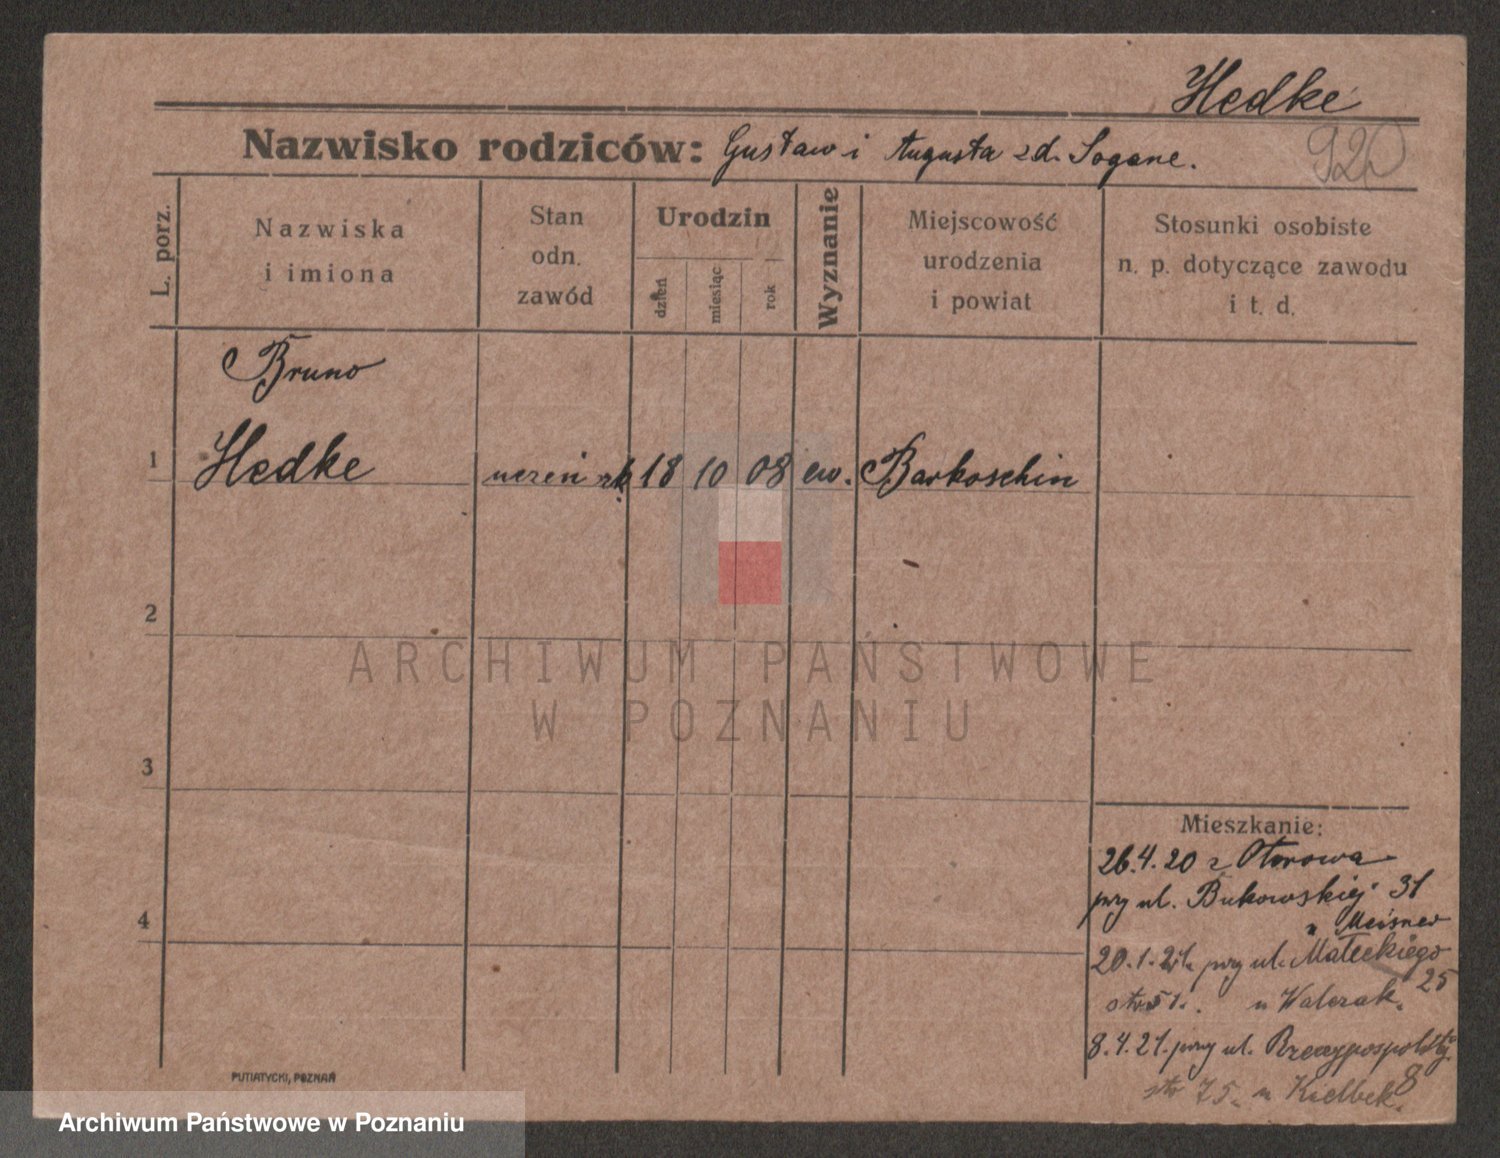 Hedke
Nazwisko rodziców: Gustaw i Augusta zd. Sogane.
920
L. porz.
Nazwiska
i imiona
Stan
odn.
zawód
Urodzin
dzień
miesiąc
rok
Wyznanie
Miejscowość
urodzenia
i powiat
Stosunki osobiste
n. p. dotyczące zawodu
i t. d.
Bruno
1 Hedke uczeń 18 10 08 ew. Barkoschin
2
3
4
ARCHIWUM PAŃSTWOWE
W POZNANIU
Mieszkanie:
26.4.20 z Otorowa
przy ul. Bukowskiej 31
u Meisner
20.1.21. przy ul. Małeckiego
25
u Walczak.
8.4.21. przy ul. Rzeczypospolitej
8
str 75. u Kielbek.
PUTIATYCKI, POZNAŃ
Archiwum Państwowe w Poznaniu